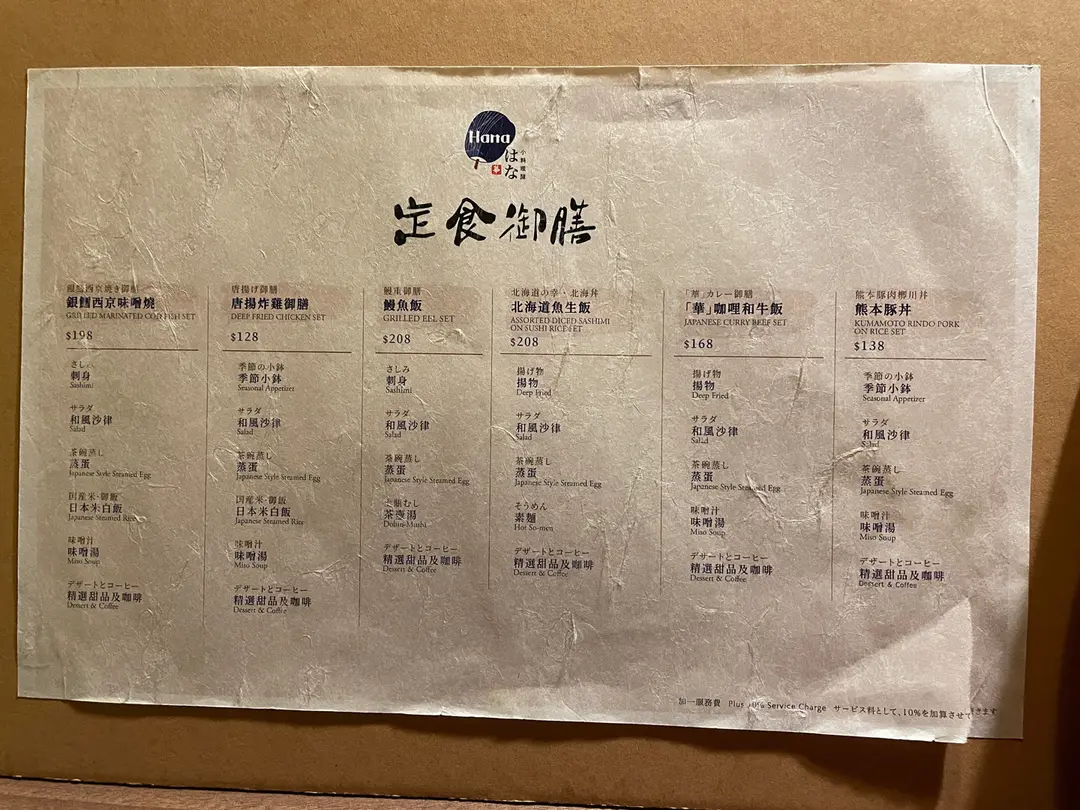 Hana
はな
小料理屋
華
定食御膳
銀鱈西京焼き御膳
銀鱈西京味噌燒
GRILLED MARINATED COD FISH SET
$198
さし
刺身
Sashimi
サラダ
和風沙律
Salad
茶碗蒸し
蒸蛋
Japanese Style Steamed Egg
国産米·御飯
日本米白飯
Japanese Steamed Rice
味噌汁
味噌湯
Miso Soup
デザートとコーヒー
精選甜品及咖啡
Dessert & Coffee
唐揚げ御膳
唐揚炸雞御膳
DEEP FRIED CHICKEN SET
$128
季節の小鉢
季節小鉢
Seasonal Appetizer
サラダ
和風沙律
Salad
茶碗蒸し
蒸蛋
Japanese Style Steamed Egg
国産米·御飯
日本米白飯
Japanese Steamed Rice
味噌汁
味噌湯
Miso Soup
デザートとコーヒー
精選甜品及咖啡
Dessert & Coffee
鰻重御膳
鰻魚飯
GRILLED EEL SET
$208
さしみ
刺身
Sashimi
サラダ
和風沙律
Salad
茶碗蒸し
蒸蛋
Japanese Style Steamed Egg
土瓶むし
茶壺湯
Dobin-Mushi
デザートとコーヒー
精選甜品及咖啡
Dessert & Coffee
北海道の幸·北海丼
北海道魚生飯
ASSORTED DICED SASHIMI
ON SUSHI RICE SET
$208
揚げ物
揚物
Deep Fried
サラダ
和風沙律
Salad
茶碗蒸し
蒸蛋
Japanese Style Steamed Egg
そうめん
素麵
Hot So-men
デザートとコーヒー
精選甜品及咖啡
Dessert & Coffee
「華」カレー御膳
「華」咖哩和牛飯
JAPANESE CURRY BEEF SET
$168
揚げ物
揚物
Deep Fried
サラダ
和風沙律
Salad
茶碗蒸し
蒸蛋
Japanese Style Steamed Egg
味噌汁
味噌湯
Miso Soup
デザートとコーヒー
精選甜品及咖啡
Dessert & Coffee
熊本豚肉柳川丼
熊本豚丼
KUMAMOTO RINDO PORK
ON RICE SET
$138
季節の小鉢
季節小鉢
Seasonal Appetizer
サラダ
和風沙律
Salad
茶碗蒸し
蒸蛋
Japanese Style Steamed Egg
味噌汁
味噌湯
Miso Soup
デザートとコーヒー
精選甜品及咖啡
Dessert & Coffee
加一服務費 Plus 10% Service Charge サービス料として、10%を加算させて頂きます